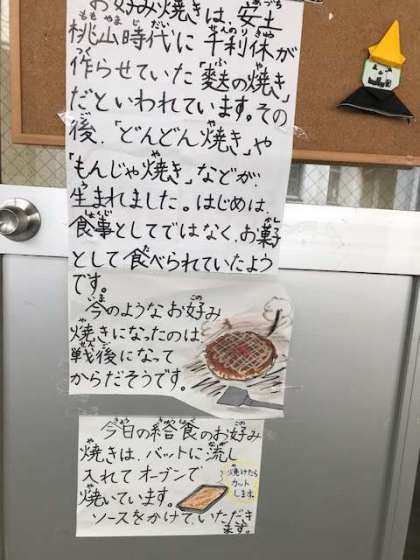 お好み焼きは、安土
桃山時代に千利休が
作らせていた「麩の焼き」
だといわれています。その
後、「どんどん焼き」や
「もんじゃ焼き」などが、
生まれました。はじめは、
食事としてではなく、お菓子
として食べられていたよう
です。
今のようなお好み
焼きになったのは
戦後になって
からだそうです。
今日の給食のお好み
焼きは、バットに流し
入れてオーブンで
焼いています。
ソースをかけて、いただき
ます。
焼けたら
カット
します。